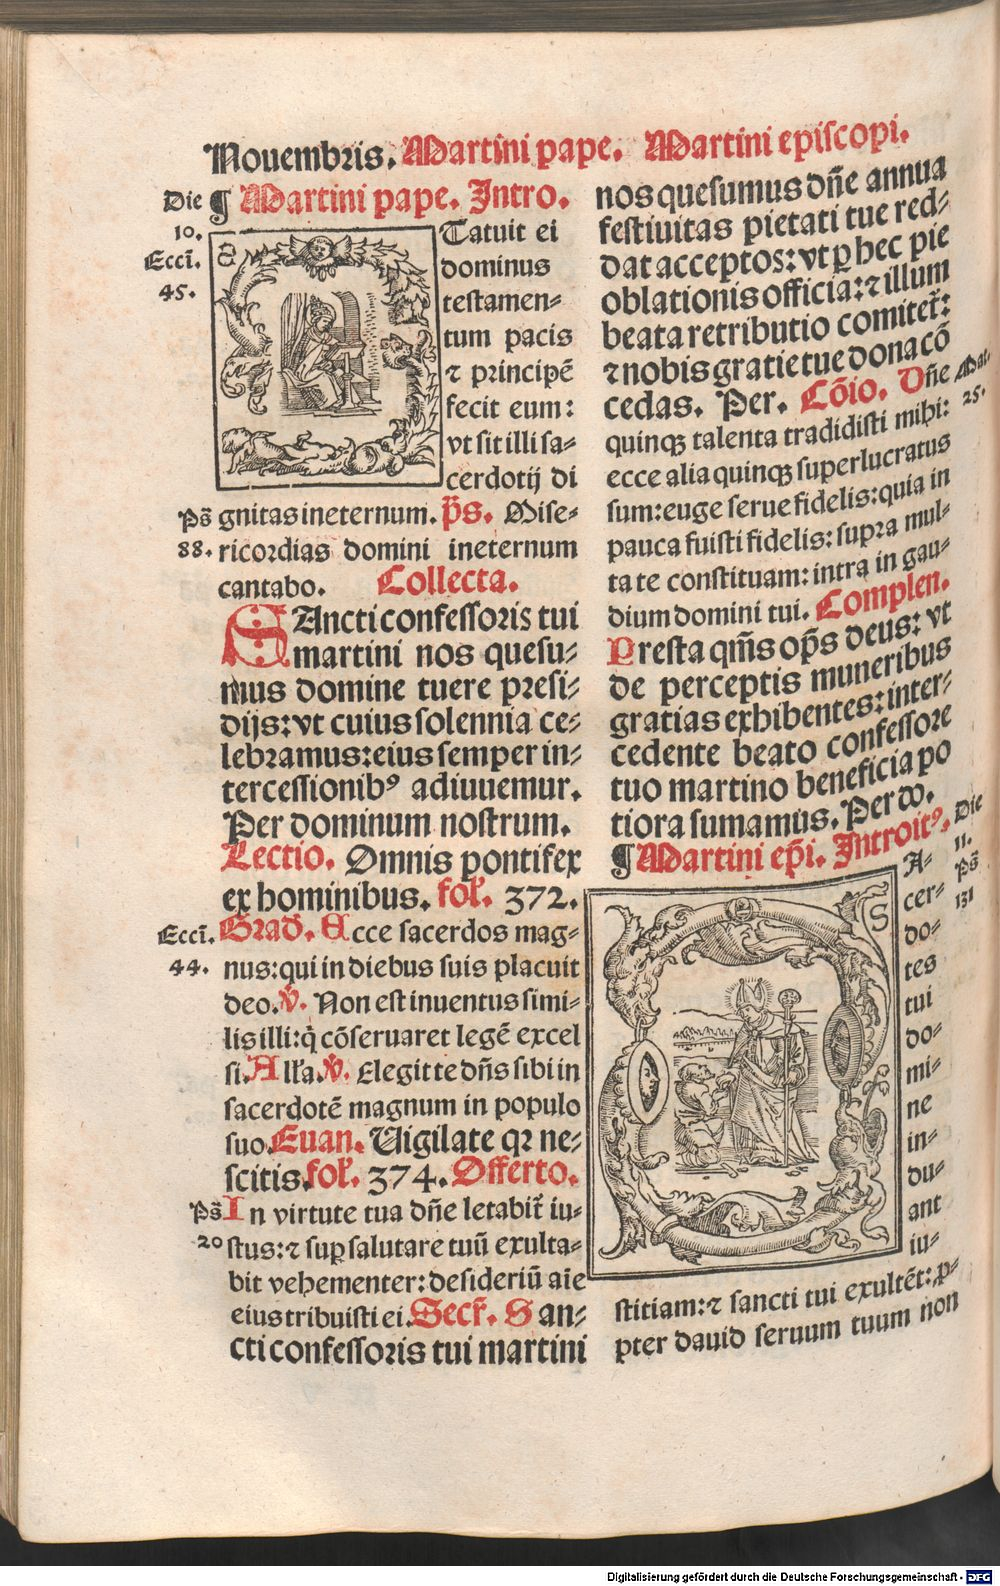 Nouembris. Martini pape. Martini episcopi.
Die ¶ Martini pape. Intro.
10.
Eccī.
45.
S
Tatuit ei
dominus
testamen⸗
tum pacis
⁊ principē
fecit eum:
vt sit illi sa⸗
cerdotij di
Ps̄ gnitas ineternum. p̄s. Mise⸗
88. ricordias domini ineternum
cantabo. Collecta.
SAncti confessoris tui
martini nos quesu⸗
mus domine tuere presi⸗
dijs: vt cuius solennia ce⸗
lebramus: eius semper in⸗
tercessionibꝰ adiuuemur.
Per dominum nostrum.
Lectio. Omnis pontifex
ex hominibus. fol. 372.
Eccī. Grad. Ecce sacerdos mag⸗
44. nus: qui in diebus suis placuit
deo. v̄. Non est inuentus simi⸗
lis illi: q̇ cōseruaret legē excel
si. Alľa. v̄. Elegit te dn̄s sibi in
sacerdotē magnum in populo
suo. Euan. Uigilate qꝛ ne⸗
scitis. fol. 374. Offerto.
Ps̄ In virtute tua dn̄e letabit̄ iu⸗
20 stus: ⁊ suꝑ salutare tuū exulta⸗
bit vehementer: desideriū aīe
eius tribuisti ei. Secr̄. San⸗
cti confessoris tui martini
nos quesumus dn̄e annua
festiuitas pietati tue red⸗
dat acceptos: vt ꝑ hec pie
oblationis officia: ⁊ illum
beata retributio comitet̄:
⁊ nobis gratie tue dona cō
cedas. Per. Cōio. Dn̄e Mat.
quinqꝫ talenta tradidisti mihi: 25.
ecce alia quinqꝫ superlucratus
sum: euge serue fidelis: quia in
pauca fuisti fidelis: supra mul⸗
ta te constituam: intra in gau⸗
dium domini tui. Complen.
Presta qm̄s op̄s deus: vt
de perceptis muneribus
gratias exhibentes: inter⸗
cedente beato confessore
tuo martino beneficia po
tiora sumamus. Per do.
¶ Martini ep̄i. Introitꝰ. Die
11.
Ps̄
131
S
A⸗
cer⸗
do⸗
tes
tui
do⸗
mi⸗
ne
in⸗
du⸗
ant
iu⸗
stitiam: ⁊ sancti tui exultēt: ꝓ⸗
pter dauid seruum tuum non
Digitalisierung gefördert durch die Deutsche Forschungsgemeinschaft - DFG